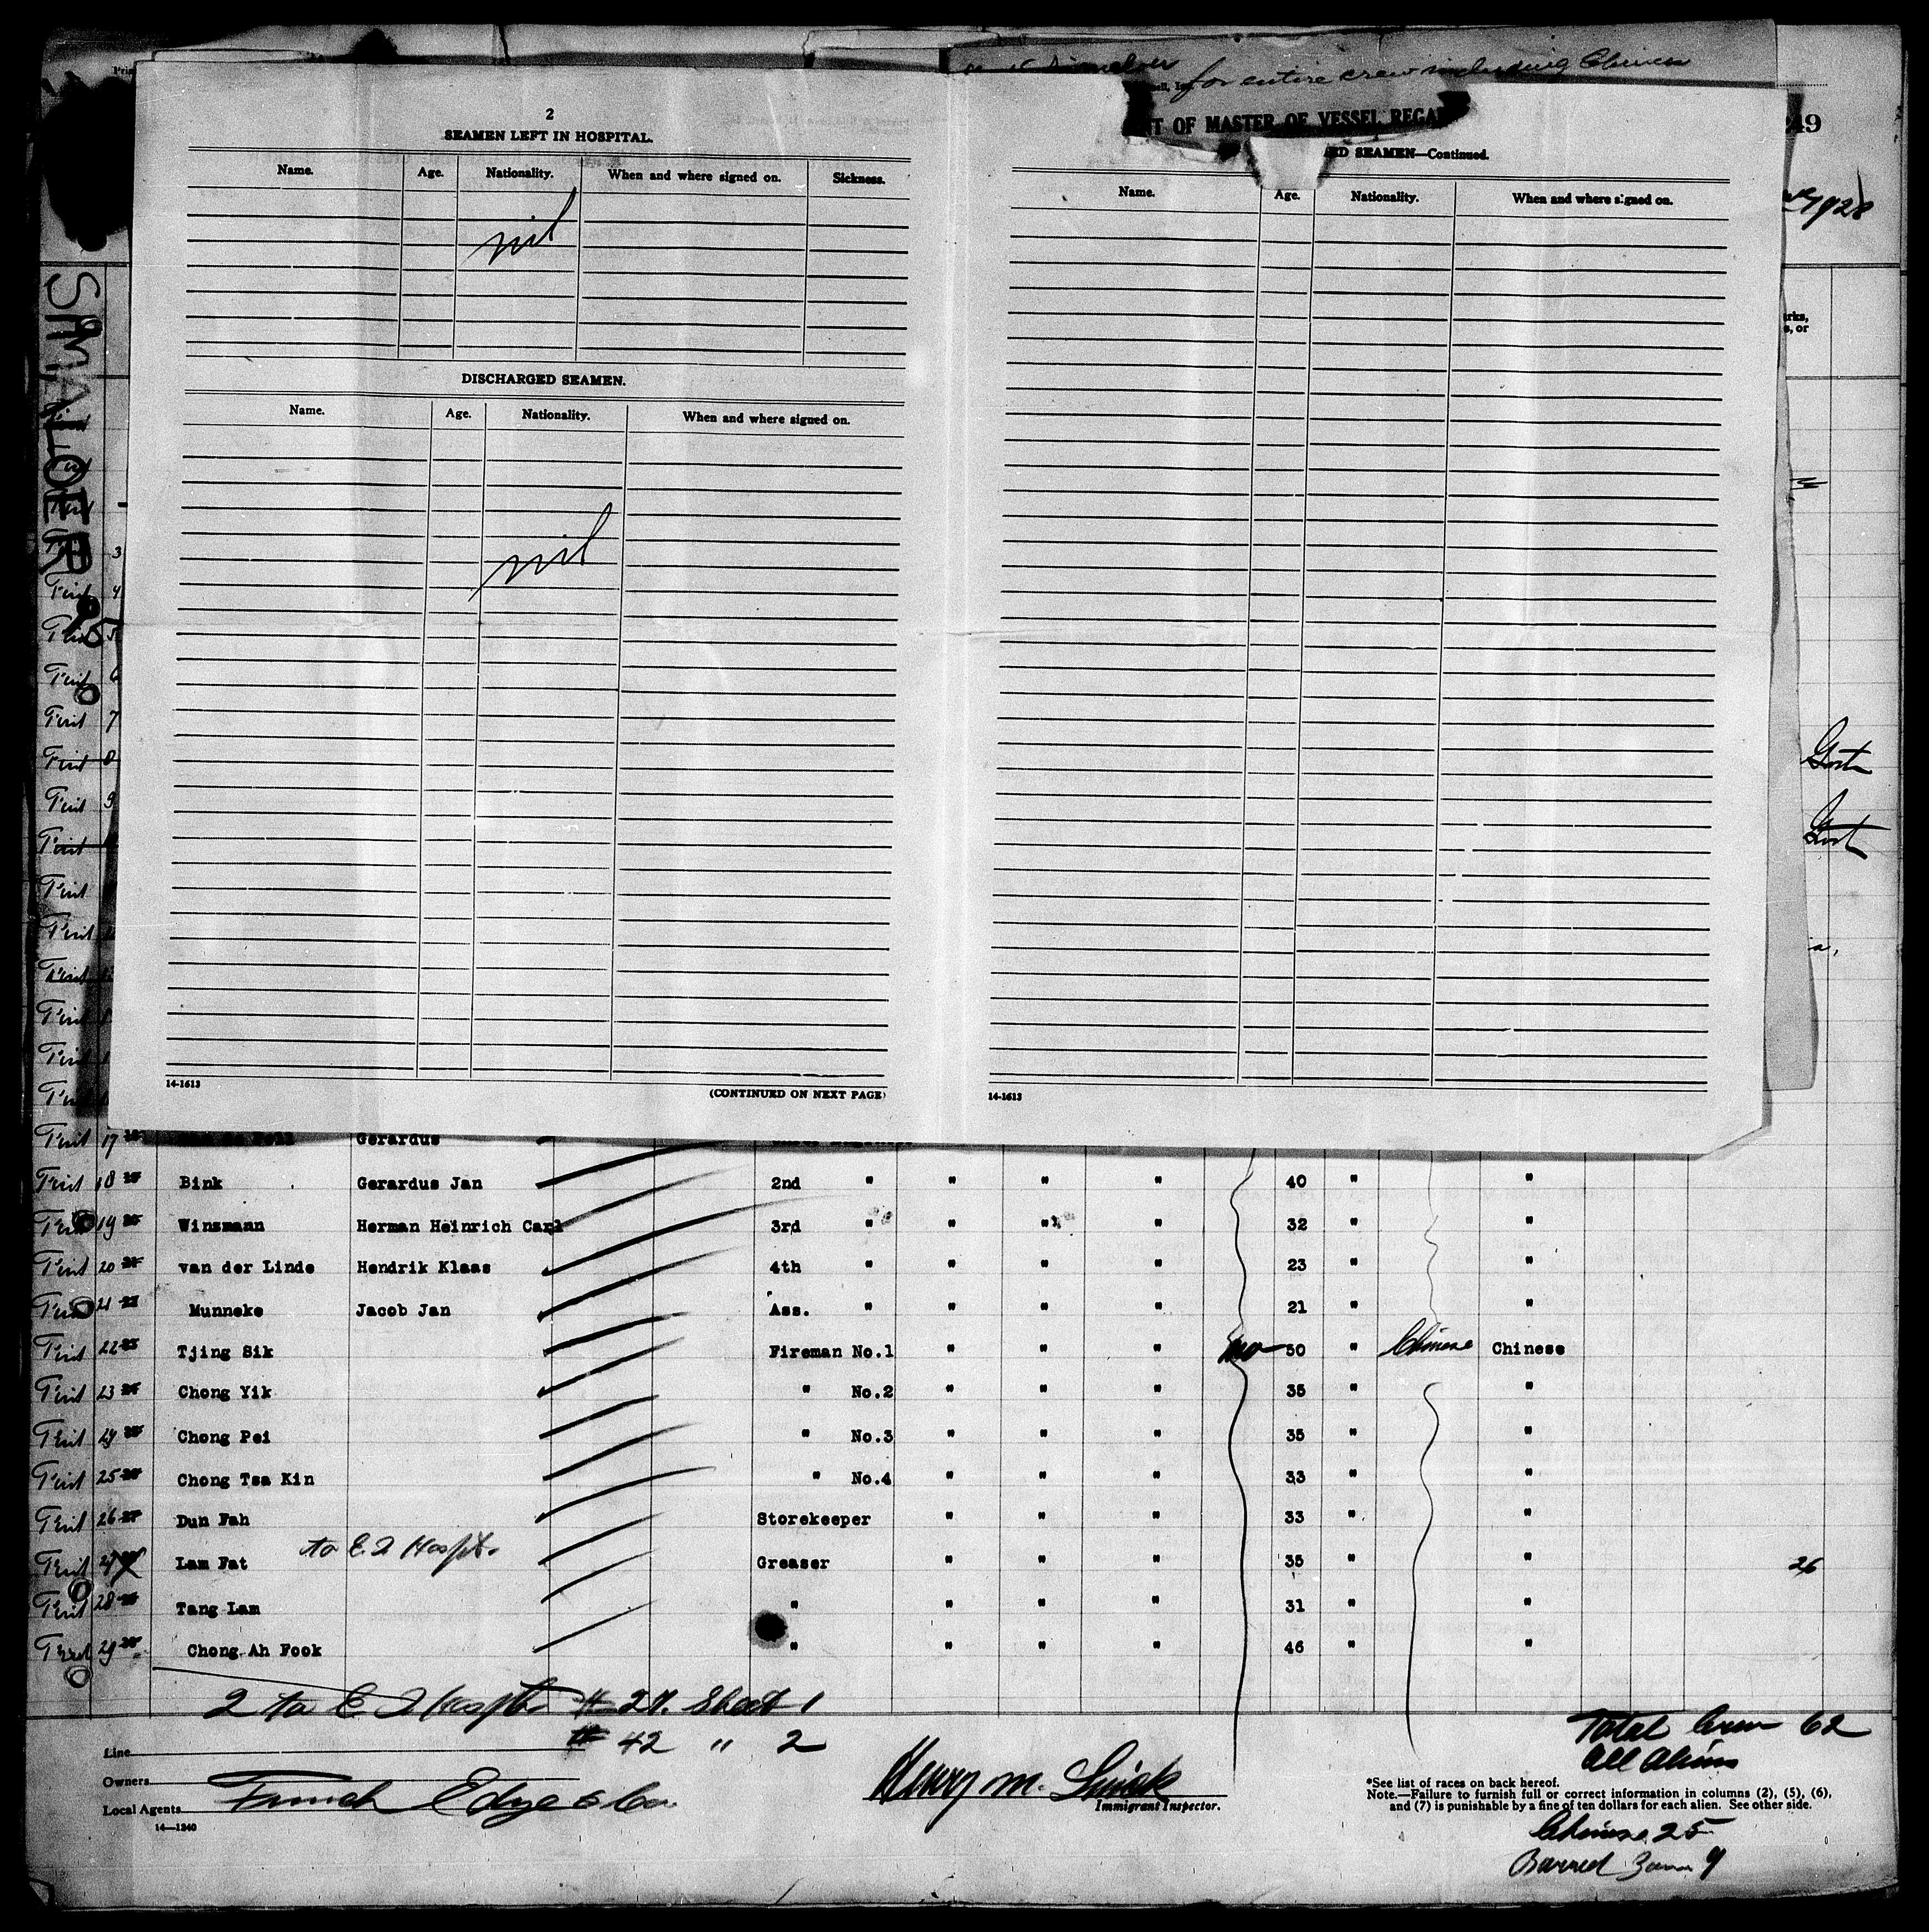 for entire crew including Chinese
2
SEAMEN LEFT IN HOSPITAL.
Name. Age. Nationality. When and where signed on. Sickness.
nil
DISCHARGED SEAMEN.
Name. Age. Nationality. When and where signed on.
nil
14-1613 (CONTINUED ON NEXT PAGE)
NT OF MASTER OF VESSEL REGA
ED SEAMEN—Continued.
Name. Age. Nationality. When and where signed on.
14-1613
249
1928
SMALOER
3
4
5
6
7
8
9
17 Gerardus
18 Bink Gerardus Jan 2nd " " " " 40 " "
19 Winsmann Herman Heinrich Carl 3rd " " " " 32 " "
20 van der Linde Hendrik Klaas 4th " " " " 23 " "
21 Munneke Jacob Jan Ass. " " " " 21 " "
22 Tjing Sik Fireman No.1 " " " 50 " Chinese Chinese
23 Chong Yik " No.2 " " " 35 " "
24 Chong Pei " No.3 " " " 35 " "
25 Chong Tsa Kin " No.4 " " " 33 " "
26 Dun Fah Storekeeper " " " 33 " "
27 Lam Fat to E.I Hospt. Greaser " " " 35 " " 26
28 Tang Lam " " " " 31 " "
29 Chong Ah Fook " " " " 46 " "
2 to E I Hospt. # 27. Sheet 1
# 42 " 2
Total Crew 62
All Aliens
Line
Owners
Local Agents Edye & Co
14—1240
Henry M.
Immigrant Inspector.
*See list of races on back hereof.
Note.—Failure to furnish full or correct information in columns (2), (5), (6),
and (7) is punishable by a fine of ten dollars for each alien. See other side.
Chinese 25
Barred Zone 9